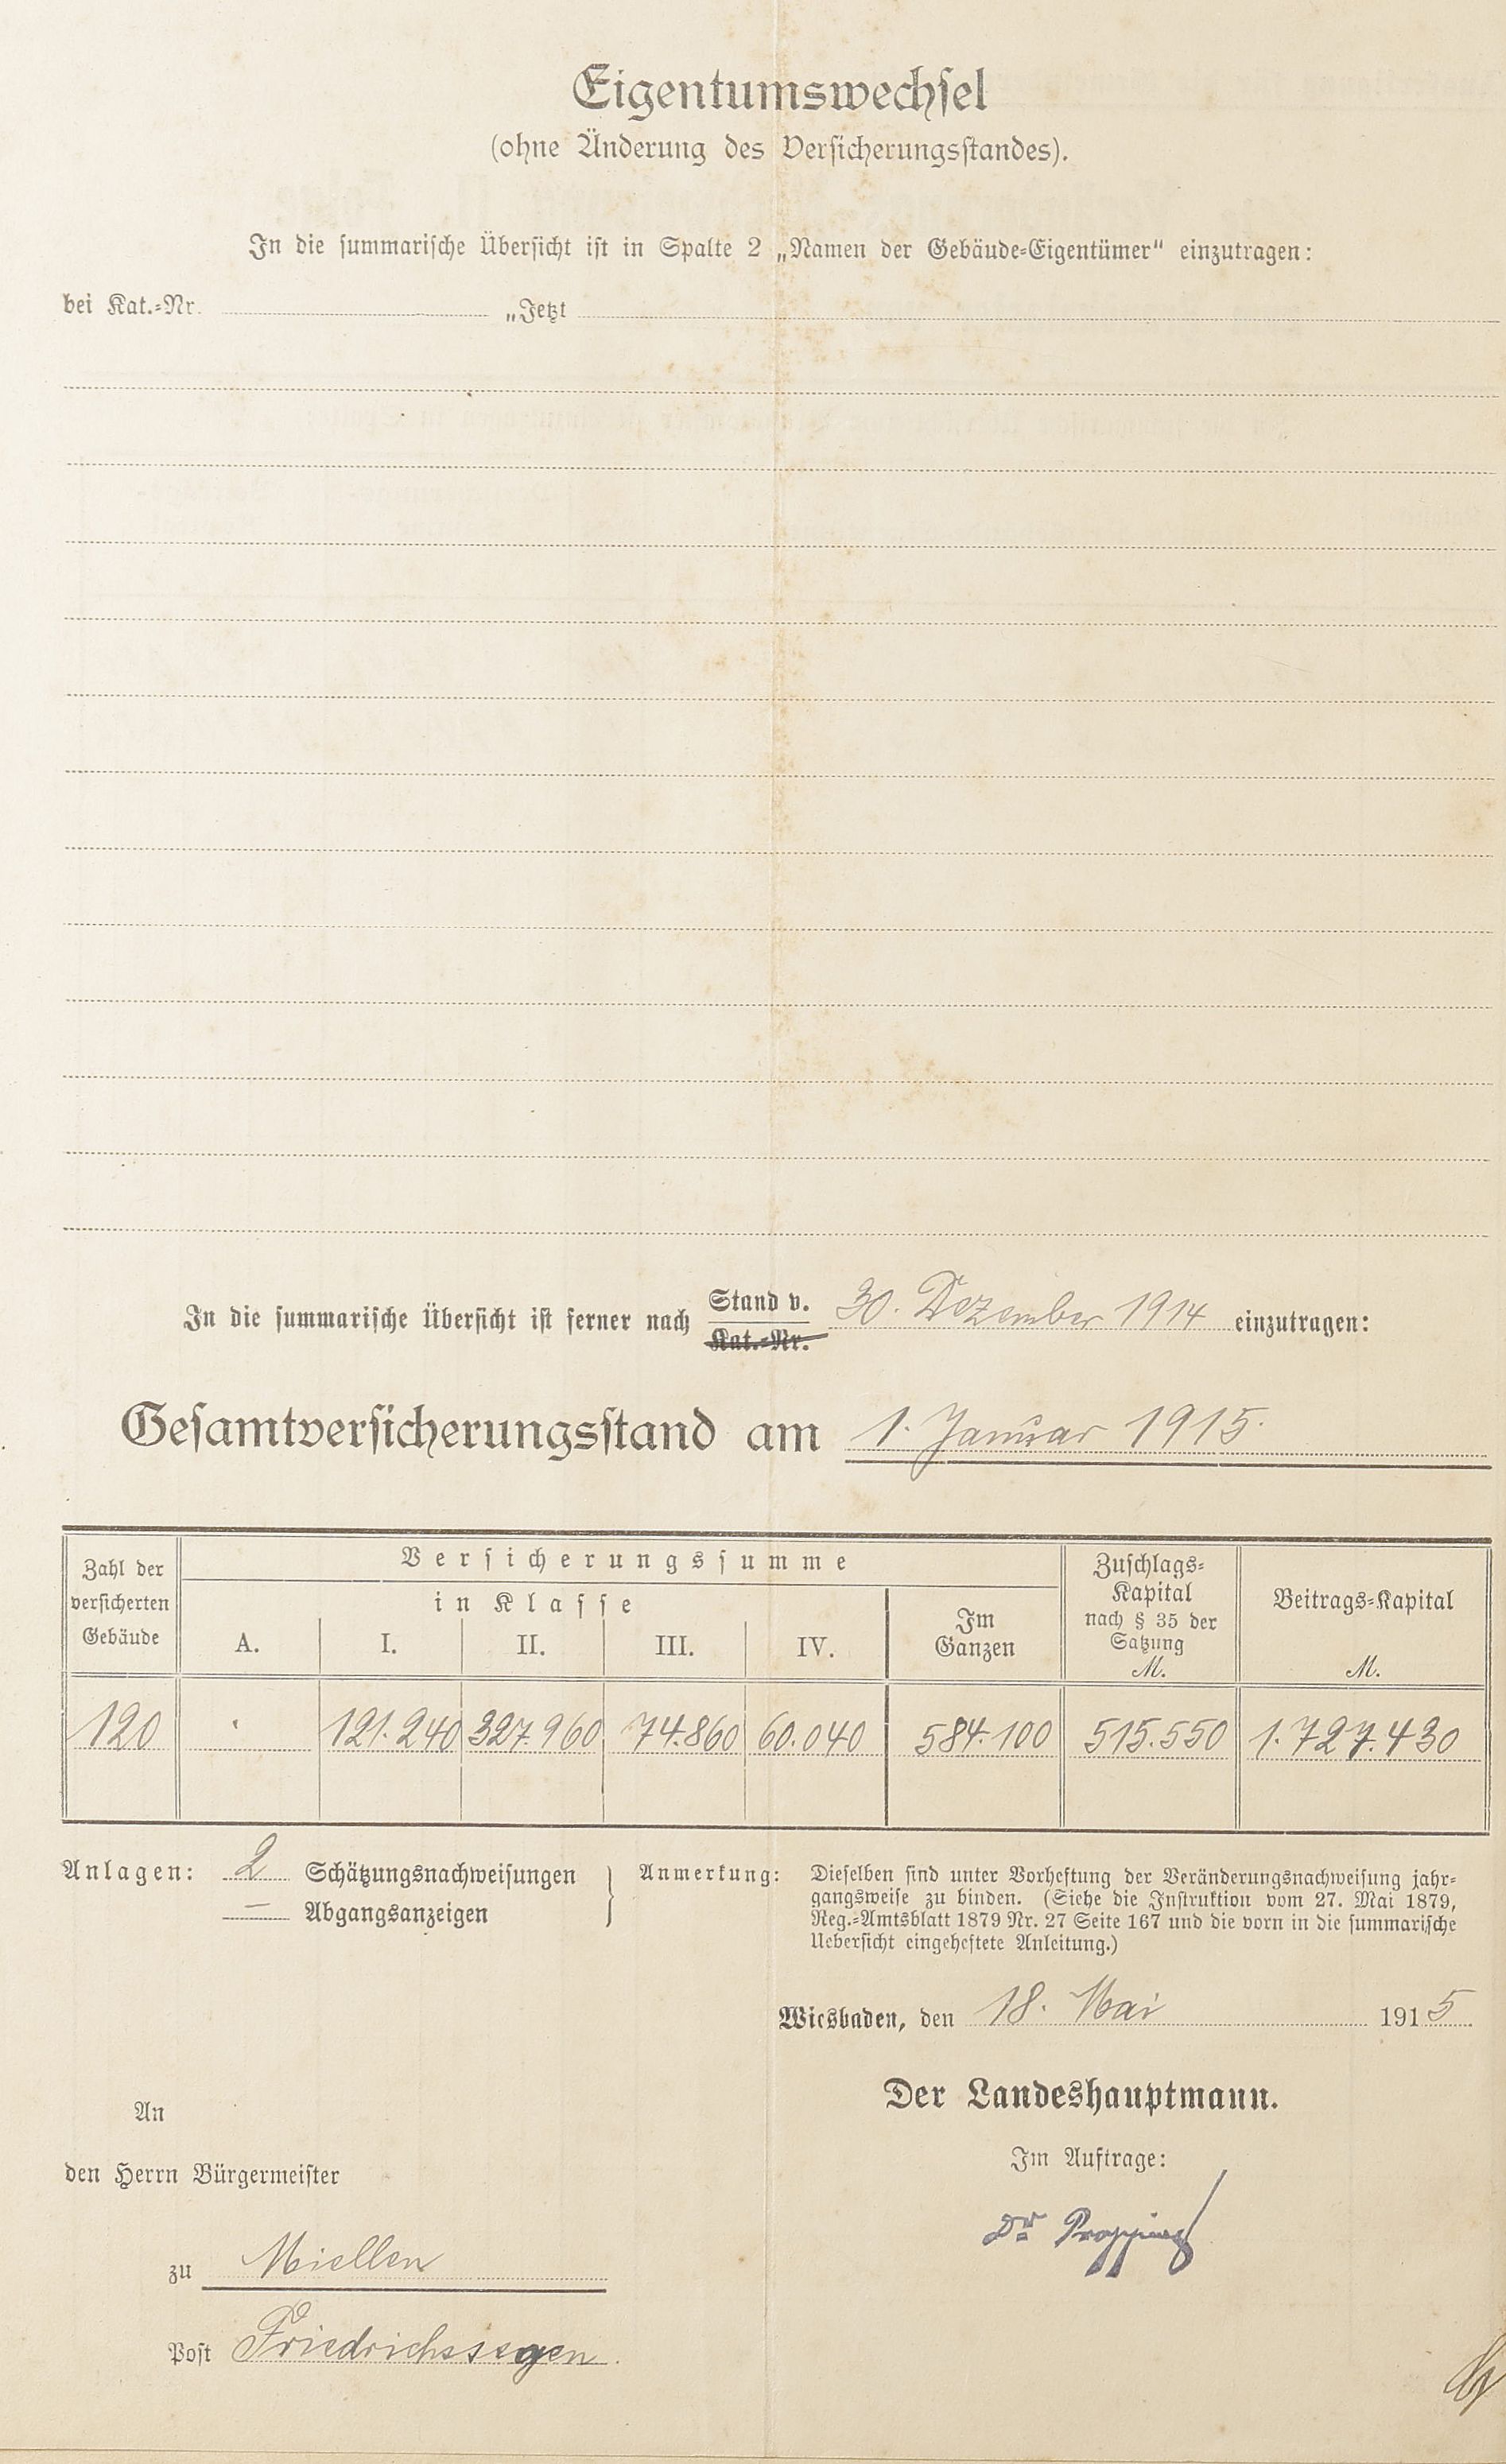 Eigentumswechsel
(ohne Änderung des Versicherungsstandes).
In die summarische Übersicht ist in Spalte 2 „Namen der Gebäude-Eigentümer“ einzutragen:
bei Kat.-Nr. „Jetzt
In die summarische Übersicht ist ferner nach Stand v. 30. Dezember 1914 einzutragen:
Kat.-Nr.
Gesamtversicherungsstand am 1. Januar 1915.
Zahl der versicherten Gebäude
Versicherungssumme
in Klasse
A. I. II. III. IV.
Im Ganzen
Zuschlags-Kapital nach § 35 der Satzung M.
Beitrags-Kapital M.
120 . 121.240 327.960 74.860 60.040 584.100 515.550 1.727.430
Anlagen: 2 Schätzungsnachweisungen
— Abgangsanzeigen
Anmerkung: Dieselben sind unter Vorheftung der Veränderungsnachweisung jahr-
gangsweise zu binden. (Siehe die Instruktion vom 27. Mai 1879,
Reg.-Amtsblatt 1879 Nr. 27 Seite 167 und die vorn in die summarische
Uebersicht eingeheftete Anleitung.)
Wiesbaden, den 18. Mai 1915.
Der Landeshauptmann.
Im Auftrage:
Dr Propping
An
den Herrn Bürgermeister
zu Miellen
Post Friedrichssegen.